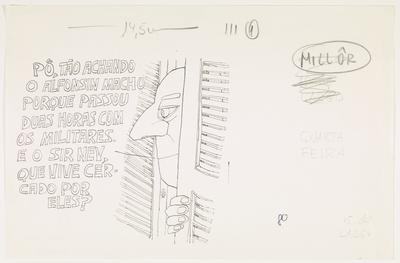 14,5
III 9
MILLÔR
PÔ, TÃO ACHANDO
O ALFONSIN MACHO
PORQUE PASSOU
DUAS HORAS COM
OS MILITARES.
E O SIR NEY,
QUE VIVE CER-
CADO POR
ELES?
QUARTA
FEIRA